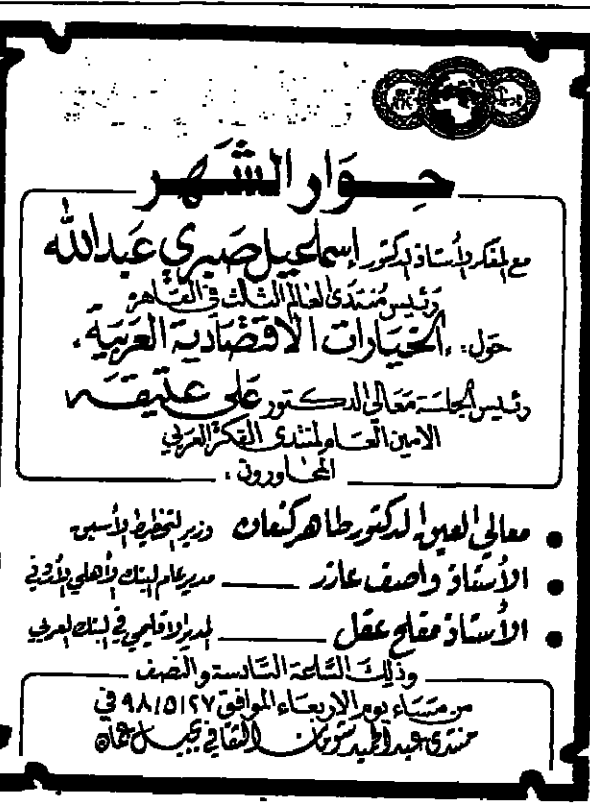 حوار الشهر
مع المفكر الأستاذ الدكتور إسماعيل صبري عبدالله
رئيس منتدى العالم الثالث في القاهرة
حول: «الخيارات الاقتصادية العربية»
رئيس الجلسة معالي الدكتور علي عتيقه
الامين العام لمنتدى الفكر العربي
المحاورون:
• معالي العين الدكتور طاهر كنعان وزير التخطيط الأسبق
• الأستاذ واصف عازر ــــ مدير عام البنك الأهلي الأردني
• الأستاذ مفلح عقل ــــ المدير الاقليمي في البنك العربي
وذلك الساعة السادسة والنصف
من مساء يوم الاربعاء الموافق ٩٨/٥/٢٧ في
منتدى عبدالحميد شومان الثقافي بجبل عمان